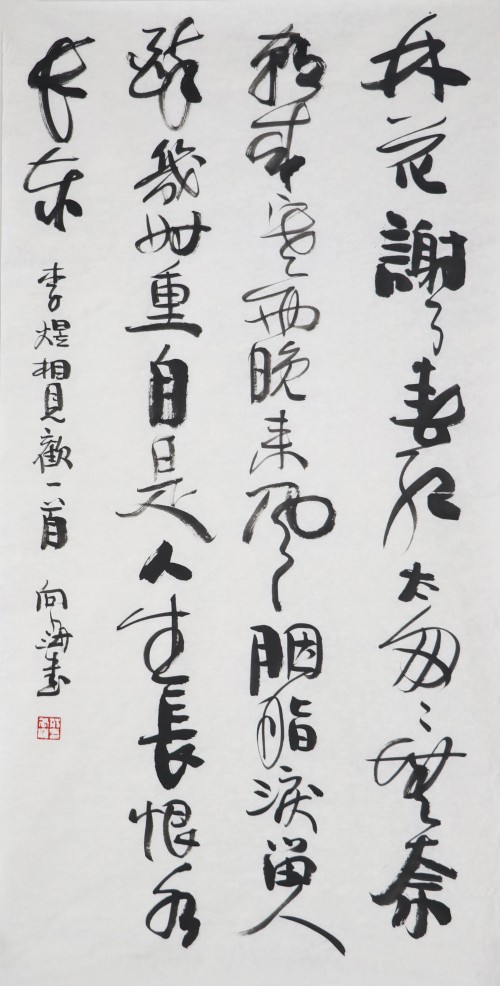 林花謝了春红太匆〻無奈
朝来寒雨晚来風胭脂淚留人
醉幾时重自是人生長恨水
长东
李煜相見歡一首 向海书